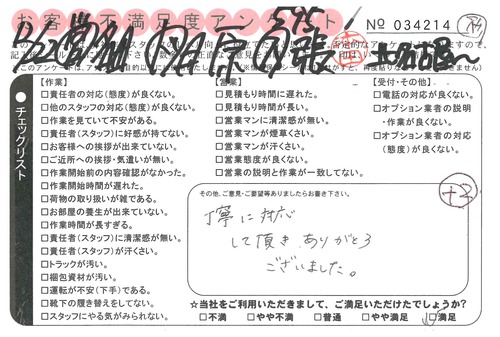 お客様不満足度アンケート
No 034214
チェックリスト
【作業】
□責任者の対応(態度)が良くない。
□他のスタッフの対応(態度)が良くない。
□作業を見ていて不安がある。
□責任者(スタッフ)に好感が持てない。
□お客様への挨拶が出来ていない。
□ご近所への挨拶・気遣いが無い。
□作業開始前の内容確認がなかった。
□作業開始時間が遅れた。
□荷物の取り扱いが雑である。
□お部屋の養生が出来ていない。
□作業時間が長すぎる。
□責任者(スタッフ)に清潔感が無い。
□責任者(スタッフ)が汗くさい。
□トラックが汚い。
□梱包資材が汚い。
□運転が不安(下手)である。
□靴下の履き替えをしてない。
□スタッフにやる気が感じられない。
【営業】
□見積もり時間に遅れた。
□見積もり時間が長い。
□営業マンに清潔感が無い。
□営業マンが煙草くさい。
□営業マンが汗くさい。
□営業態度が良くない。
□営業の説明と作業が一致してない。
【受付・その他】
□電話の対応が良くない。
□オプション業者の説明
・作業が良くない。
□オプション業者の対応
(態度)が良くない。
その他、ご意見・ご要望等ありましたらお書き下さい。
丁寧に対応
して頂きありがとう
ございました。
☆当社をご利用いただきまして、ご満足いただけたでしょうか?
□不満 □やや不満 □普通 □やや満足 □満足